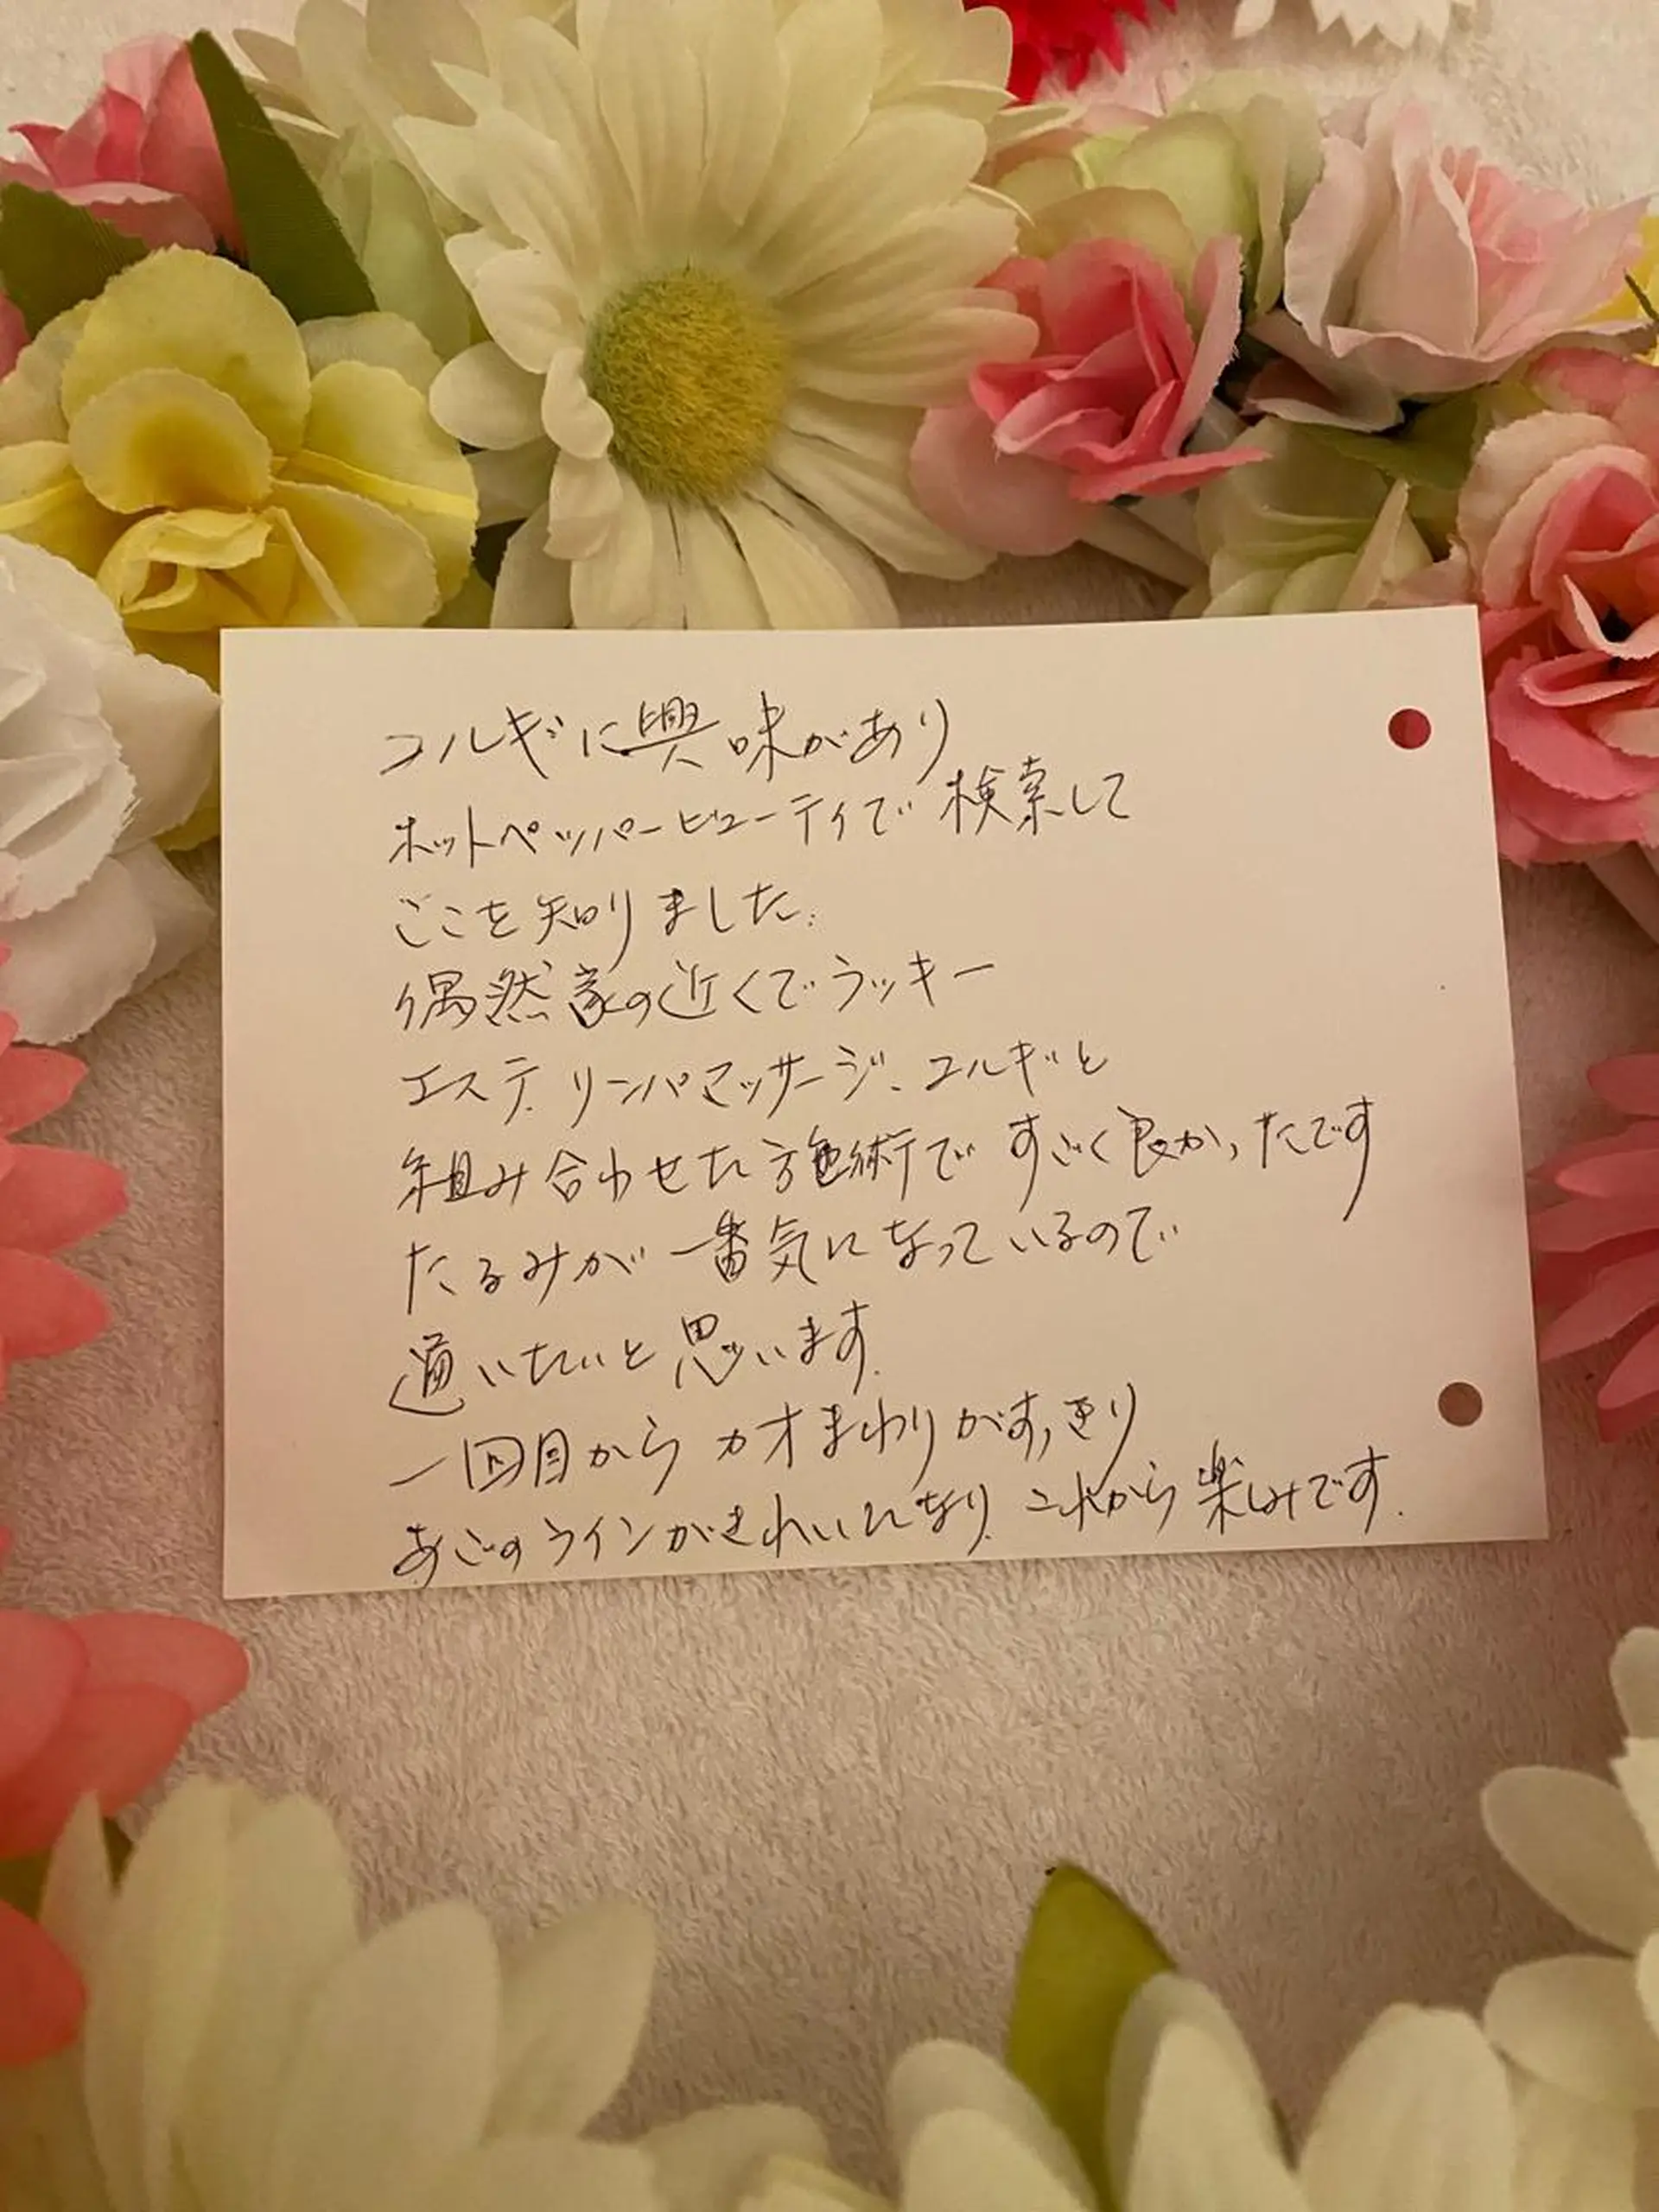 コルギに興味があり
ホットペッパービューティで検索して
ここを知りました。
偶然家の近くでラッキー
エステ、リンパマッサージ、コルギと
組み合わせた施術ですごく良かったです
たるみが一番気になっているので
通いたいと思います。
一回目からカオまわりがすっきり
あごのラインがきれいになり、これから楽しみです。